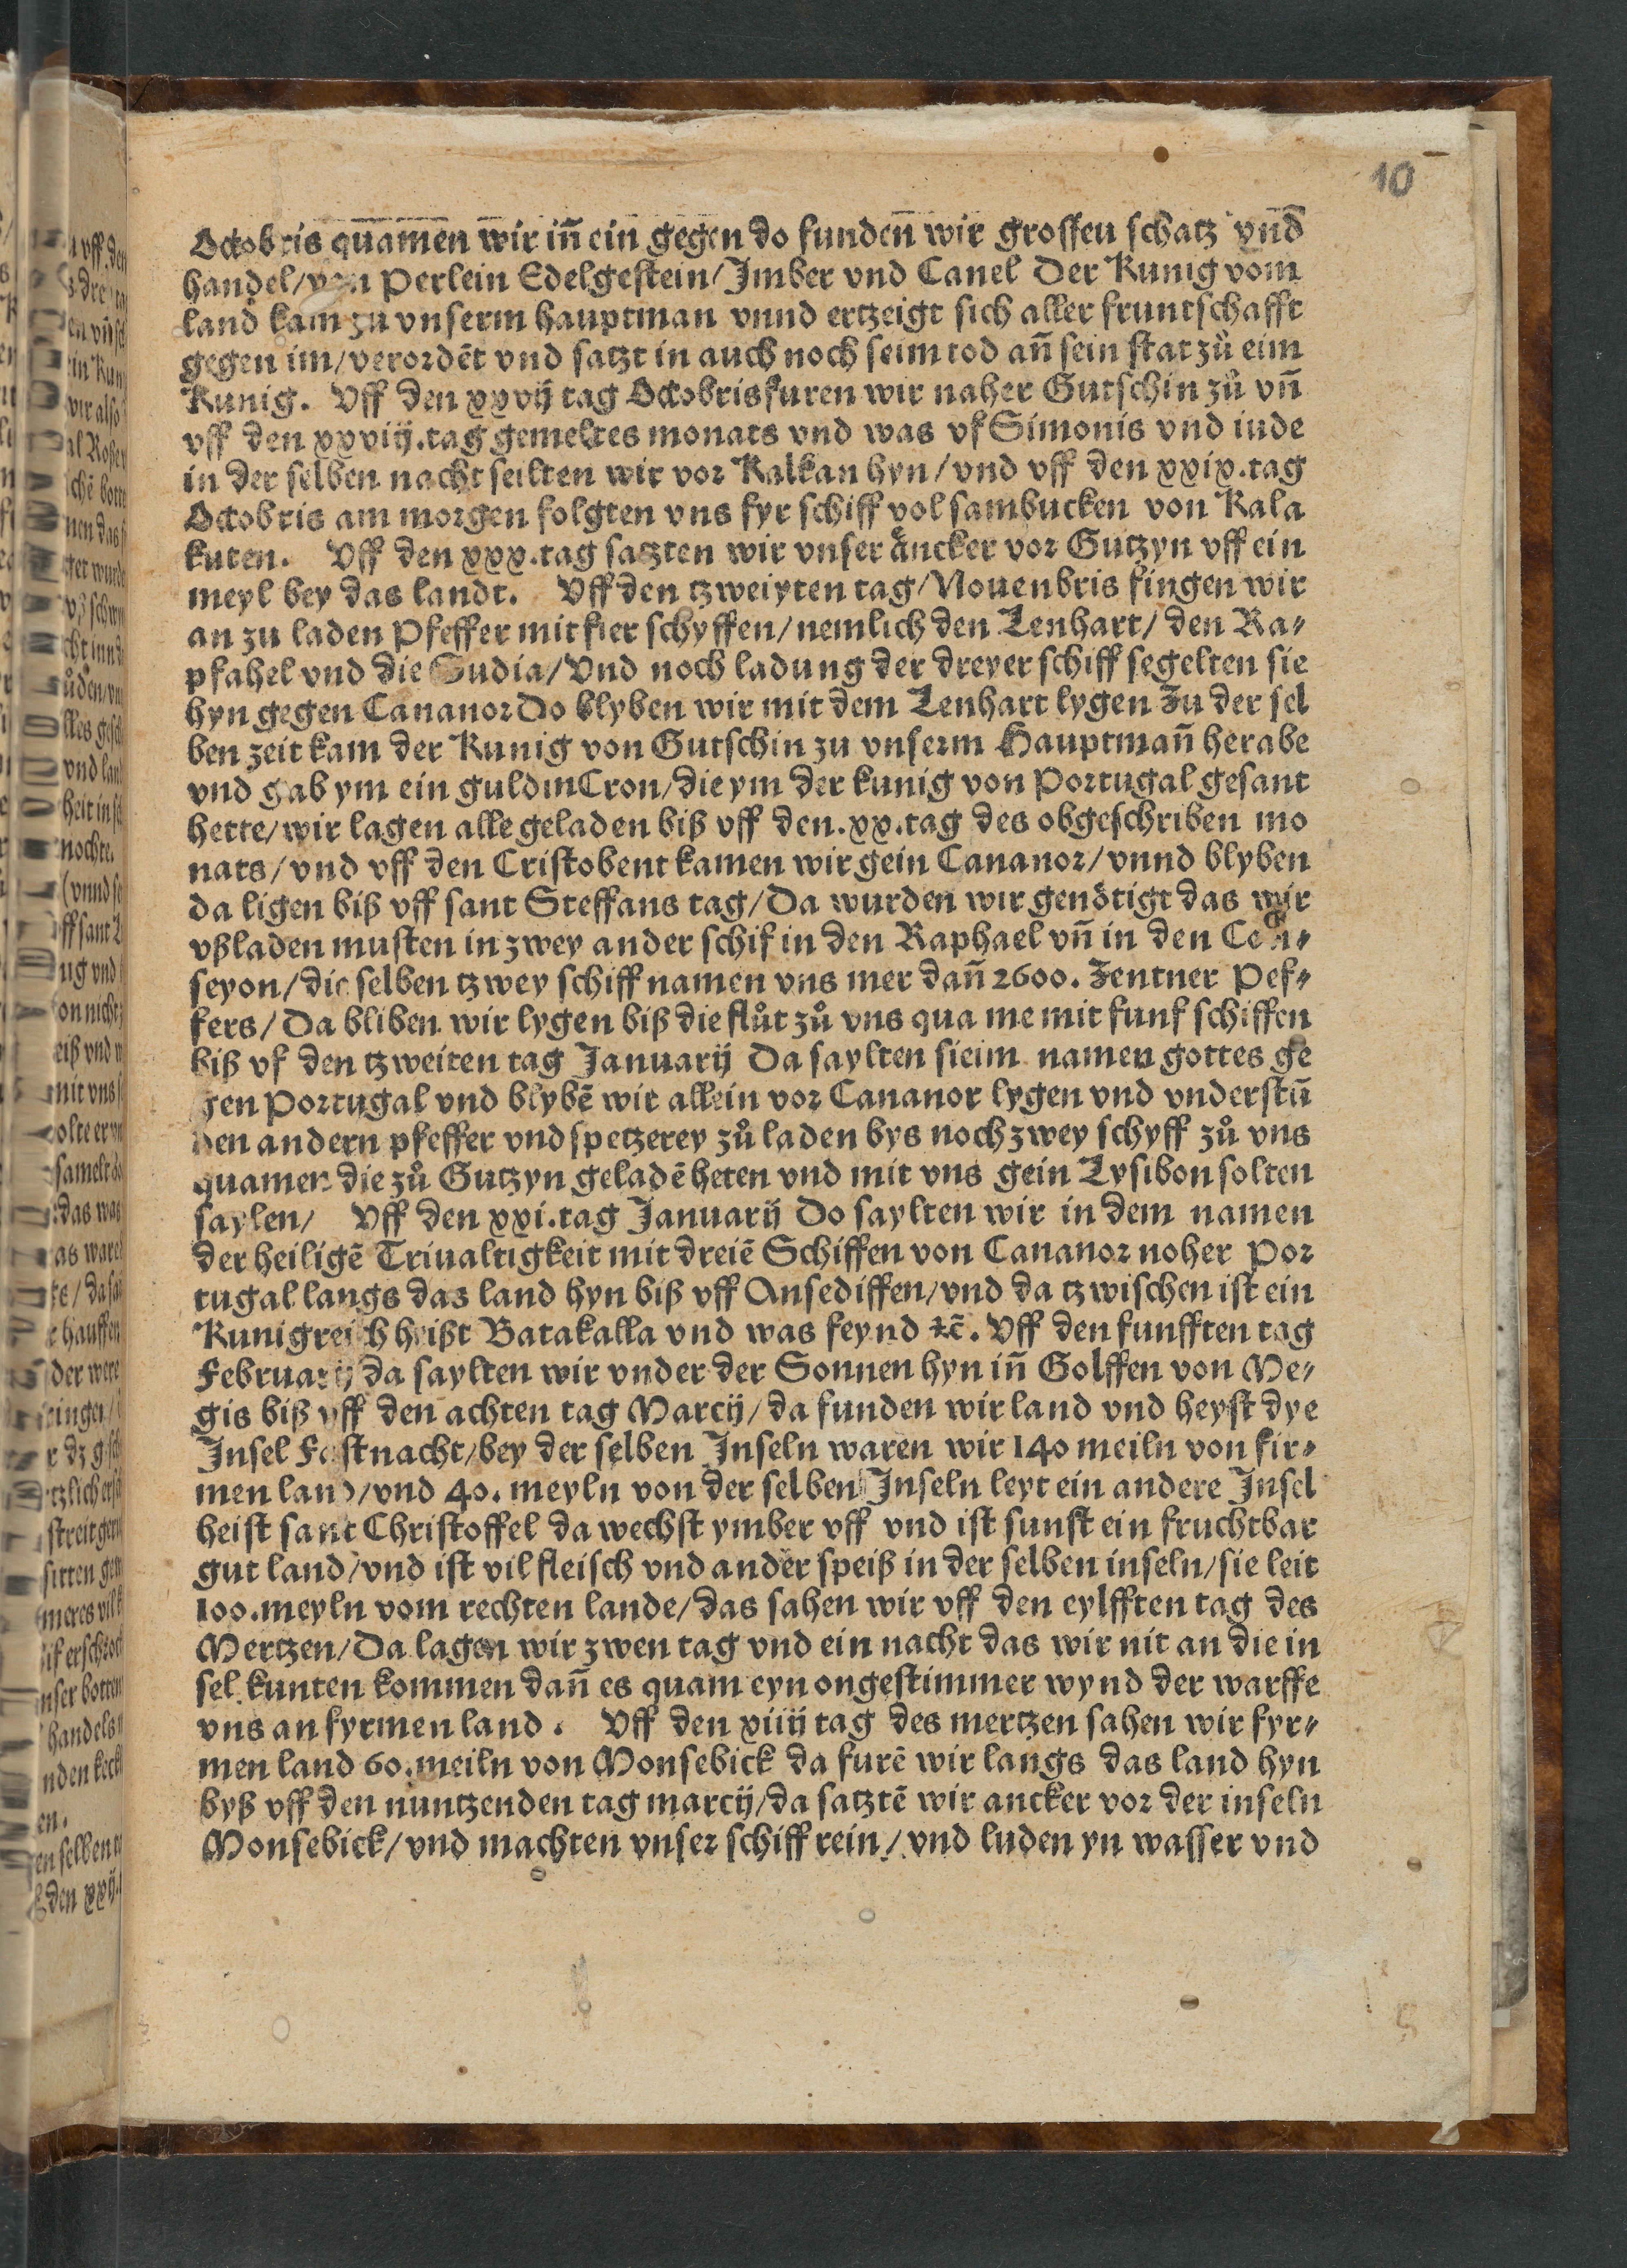 10
Octobris quamen wir in̄ ein gegen do funden̄ wir grossen schatz vnd̄
handel/ von Perlein Edelgestein/ Jmber vnd Canel Der Kunig vom
land kam zu vnserm hauptman vnnd ertzeigt sich aller fruntschafft
gegen im/ verordēt vnd satzt in auch noch seim tod an̄ sein stat zů eim
Kunig. Vff den xxvij tag Octobris furen wir naher Gutschin zů vn̄
vff den xxviij.tag gemeltes monats vnd was vf Simonis vnd iude
in der selben nacht seilten wir vor Kalkan hyn/ vnd vff den xxix.tag
Octobris am morgen folgten vns fyr schiff vol sambucken von Kala
kuten. Vff den xxx.tag satzten wir vnser åncker vor Gutzyn vff ein
meyl bey das landt. Vff den tzweiyten tag/ Nouenbris fingen wir
an zu laden Pfeffer mit fier schyffen/ nemlich den Lenhart/ den Ra⸗
pfahel vnd die Iudia/ Vnd noch ladung der dreyer schiff segelten sie
hyn gegen Cananor Do blyben wir mit dem Lenhart lygen Zu der sel
ben zeit kam der Kunig von Gutschin zu vnserm Hauptman̄ herabe
vnd gab ym ein guldin Cron/ die ym der kunig von Portugal gesant
hette/ wir lagen alle geladen biß vff den.xx.tag des obgeschriben mo
nats/ vnd vff den Cristobent kamen wir gein Cananor/ vnnd blyben
da ligen biß vff sant Steffans tag/ Da wurden wir genötigt das wir
vßladen musten in zwey ander schif in den Raphael vn̄ in den Con⸗
seyon/ die selben tzwey schiff namen vns mer dan̄ 2600. Zentner Pef⸗
fers/ Da bliben wir lygen biß die flůt zů vns qua me mit funf schiffen
biß vf den tzweiten tag Januarij Da saylten sie im namen gottes ge
gen Portugal vnd blybē wir allein vor Cananor lygen vnd vnderstū
den andern pfeffer vnd spetzerey zů laden bys noch zwey schyff zů vns
quamen die zů Gutzyn geladē heten vnd mit vns gein Lysibon solten
saylen/ Vff den xxi.tag Januarij Do saylten wir in dem namen
der heiligē Triualtigkeit mit dreiē Schiffen von Cananor noher Por
tugal langs das land hyn biß vff Ansediffen/ vnd da tzwischen ist ein
Kunigreich heißt Batakalla vnd was feynd ꝛc̄. Vff den funfften tag
Februarij da saylten wir vnder der Sonnen hyn in̄ Golffen von Me⸗
gis biß vff den achten tag Marcij/ da funden wir land vnd heyst dye
Jnsel Fastnacht/ bey der selben Jnseln waren wir 140 meiln von fir⸗
men land/ vnd 40. meyln von der selben Jnseln leyt ein andere Jnsel
heist sant Christoffel da wechst ymber vff vnd ist sunst ein fruchtbar
gut land/ vnd ist vil fleisch vnd ander speiß in der selben inseln/ sie leit
100.meyln vom rechten lande/ das sahen wir vff den eylfften tag des
Mertzen/ Da lagen wir zwen tag vnd ein nacht das wir nit an die in
sel kunten kommen dan̄ es quam eyn ongestimmer wynd der warffe
vns an fyrmen land. Vff den xiiij tag des mertzen sahen wir fyr⸗
men land 60.meiln von Monsebick da furē wir langs das land hyn
byß vff den nuntzenden tag marcij/ da satztē wir ancker vor der inseln
Monsebick/ vnd machten vnser schiff rein/ vnd luden yn wasser vnd